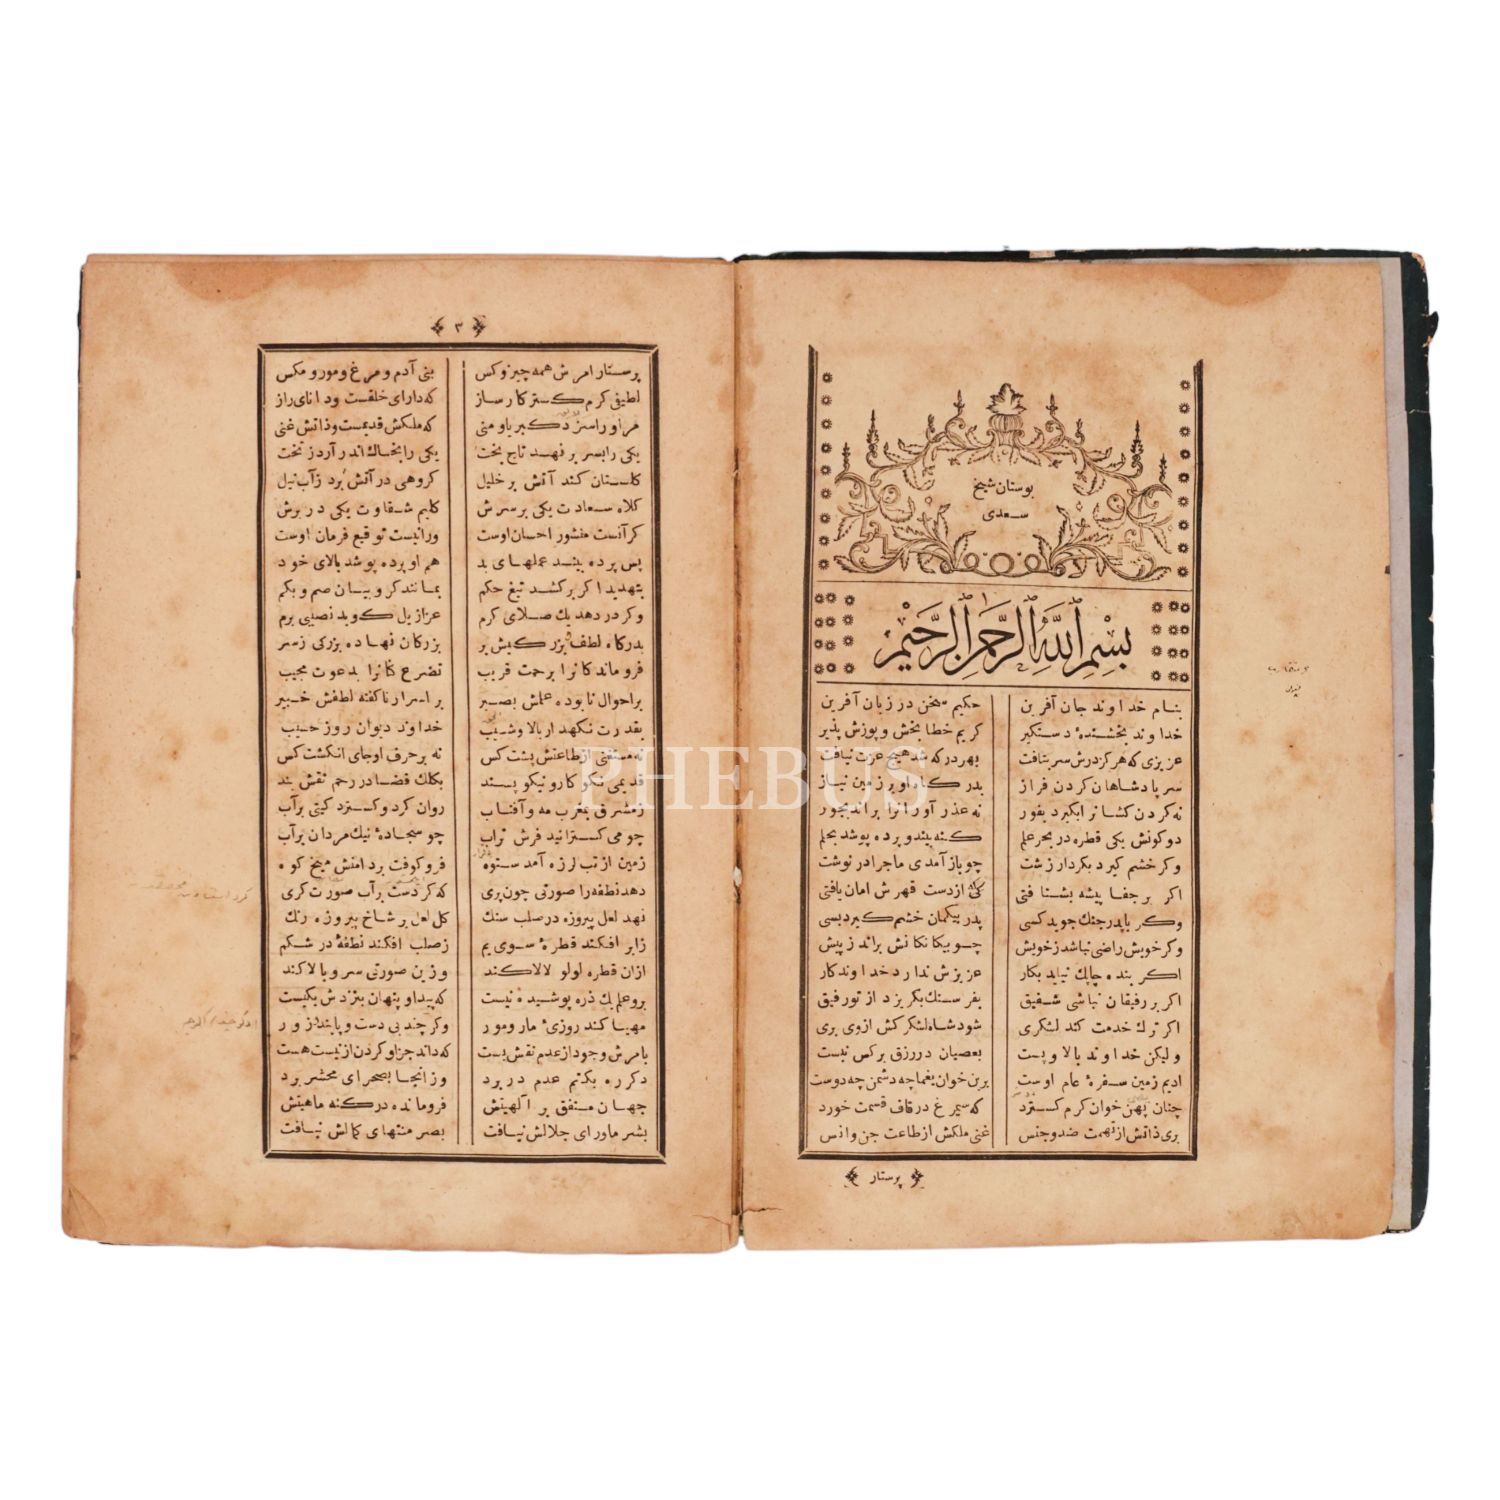 بوستان شیخ
سعدی
بِسْمِ اللَّهِ الرَّحْمَنِ الرَّحِيْمِ
بنام خداوند جان آفرین حکیم سخن در زبان آفرین
خداوند بخشندهٔ دستکیر کریم خطا بخش و پوزش پذیر
عزیزی که هرکز درش سر بتافت بهر در که شد هیچ عزت نیافت
سر پادشاهان کردن فراز بدرکاه او بر زمین نیاز
نه کردن کشانرا بکیرد بفور نه عذر آورانرا براند بجور
دو کونش یکی قطره در بحر علم کنه بیند و پرده پوشد بحلم
وکر خشم کیرد بکردار زشت چو باز آمدی ماجرا در نوشت
اکر بر جفا پیشه بشتافتی کی از دست قهرش امان یافتی
وکر با پدر جنك جوید کسی پدر بیکمان خشم کیرد بسی
وکر خویش راضی نباشد ز خویش چو بیکانکانش براند ز پیش
اکر بنده چابك نیاید بکار عزیزش ندارد خداوندکار
اکر بر رفیقان نباشی شفیق بفرسنك بکریزد از تو رفیق
اکر ترك خدمت کند لشکری شود شاه لشکرکش از وی بری
ولیکن خداوند بالا و پست بعصیان در رزق بر کس نبست
ادیم زمین سفرهٔ عام اوست برین خوان یغما چه دشمن چه دوست
چنان پهن خوان کرم کسترد که سیمرغ در قاف قسمت خورد
بری ذاتش از تهمت ضد و جنس غنی ملکش از طاعت جن و انس
پرستار
۳
پرستار امرش همه چیز و کس بنی آدم و مرغ و مور و مکس
لطیفی کرم کستر کارساز که دارای خلقست و دانای راز
مر او را سزد کبریا و منی که ملکش قدیمست و ذاتش غنی
یکی را بسر بر نهد تاج بخت یکی را بخاك اندر آرد ز تخت
کلاه سعادت یکی بر سرش کلیم شقاوت یکی در برش
کلستان کند آتش بر خلیل کروهی در آتش برد ز آب نیل
کر آنست منشور احسان اوست ور اینست توقیع فرمان اوست
پس پرده بیند عملهای بد هم او پرده پوشد بالای خود
بتهدید اکر برکشد تیغ حکم بمانند کروبیان صم و بکم
وکر در دهد یك صلای کرم عزازیل کوید نصیبی برم
بدرکاه لطف بزرکیش بر بزرکان نهاده بزرکی ز سر
فروماندکانرا برحمت قریب تضرع کنانرا بدعوت مجیب
بر احوال نابوده علمش بصیر بر اسرار ناکفته لطفش خبیر
بقدرت نکهدار بالا و شیب خداوند دیوان روز حسیب
نه مستغنی از طاعتش پشت کس نه بر حرف او جای انکشت کس
قدیمی نکوکار و نیکو پسند بکلك قضا در رحم نقش بند
ز مشرق بمغرب مه و آفتاب روان کرد و کسترد کیتی بر آب
چو می کسترانید فرش تراب چو سجادهٔ نیك مردان بر آب
زمین از تب لرزه آمد ستوه فرو کوفت بر دامنش میخ کوه
دهد نطفه را صورتی چون پری که کردست بر آب صورت کری
نهد لعل پیروزه در صلب سنك کل لعل بر شاخ پیروزه رنك
ز ابر افکند قطرهٔ سوی یم ز صلب افکند نطفهٔ در شکم
از ان قطره لولو لالا کند وزین صورتی سرو بالا کند
برو علم یك ذره پوشیده نیست که پیدا و پنهان بنزدش یکیست
مهیا کند روزیٔ مار و مور وکر چند بی دست و پایند و زور
بامرش وجود از عدم نقش بست که داند جز او کردن از نیست هست
دکر ره بکتم عدم در برد وز انجا بصحرای محشر برد
جهان متفق بر آلهیتش فرومانده در کنه ماهیتش
بشر ماورای جلالش نیافت بصر منتهای کمالش نیافت
PHEBUS